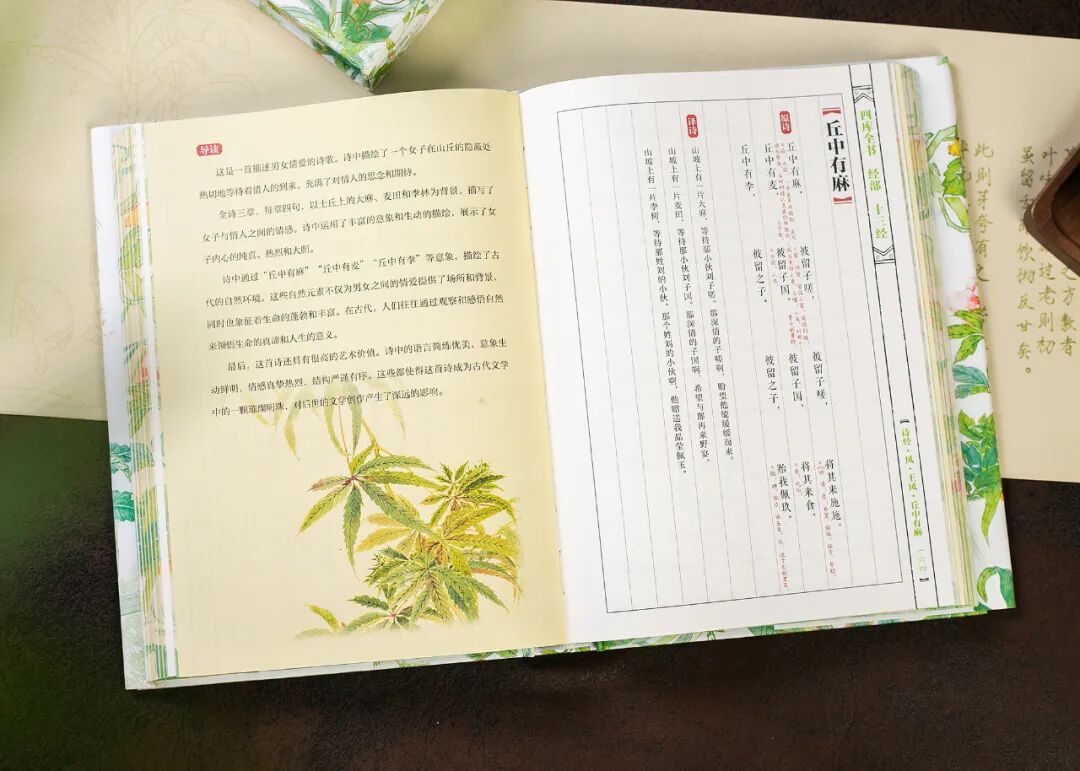 导读
这是一首描述男女情爱的诗歌。诗中描绘了一个女子在山丘的隐蔽处
热切地等待着情人的到来，充满了对情人的思念和期待。
全诗三章，每章四句，以土丘上的大麻、麦田和李林为背景，描写了
女子与情人之间的情感。诗中运用了丰富的意象和生动的描绘，展示了女
子内心的纯真、热烈和大胆。
诗中通过“丘中有麻”“丘中有麦”“丘中有李”等意象，描绘了古
代的自然环境。这些自然元素不仅为男女之间的情爱提供了场所和背景，
同时也象征着生命的蓬勃和丰富。在古代，人们往往通过观察和感悟自然
来领悟生命的真谛和人生的意义。
最后，这首诗还具有很高的艺术价值。诗中的语言简练优美，意象生
动鲜明，情感真挚热烈，结构严谨有序。这些都使得这首诗成为古代文学
中的一颗璀璨明珠，对后世的文学创作产生了深远的影响。
四库全书 经部 十三经
诗经·风·王风·丘中有麻
一六四
【丘中有麻】
原诗
丘中有麻，彼留子嗟。彼留子嗟，将其来施施。
丘中有麦，彼留子国。彼留子国，将其来食。
丘中有李，彼留之子。彼留之子，贻我佩玖。
译诗
山坡上有一片大麻，等待那小伙刘子嗟。那深情的子嗟啊，盼望他能缓缓而来。
山坡上有一片麦田，等待那小伙刘子国。那深情的子国啊，希望与郎再来野宴。
山坡上有一片李树，等待那姓刘的小伙。那个姓刘的小伙啊，他赠送我晶莹佩玉。
过老则初
饮物反甘矣。
此则芽祭有之